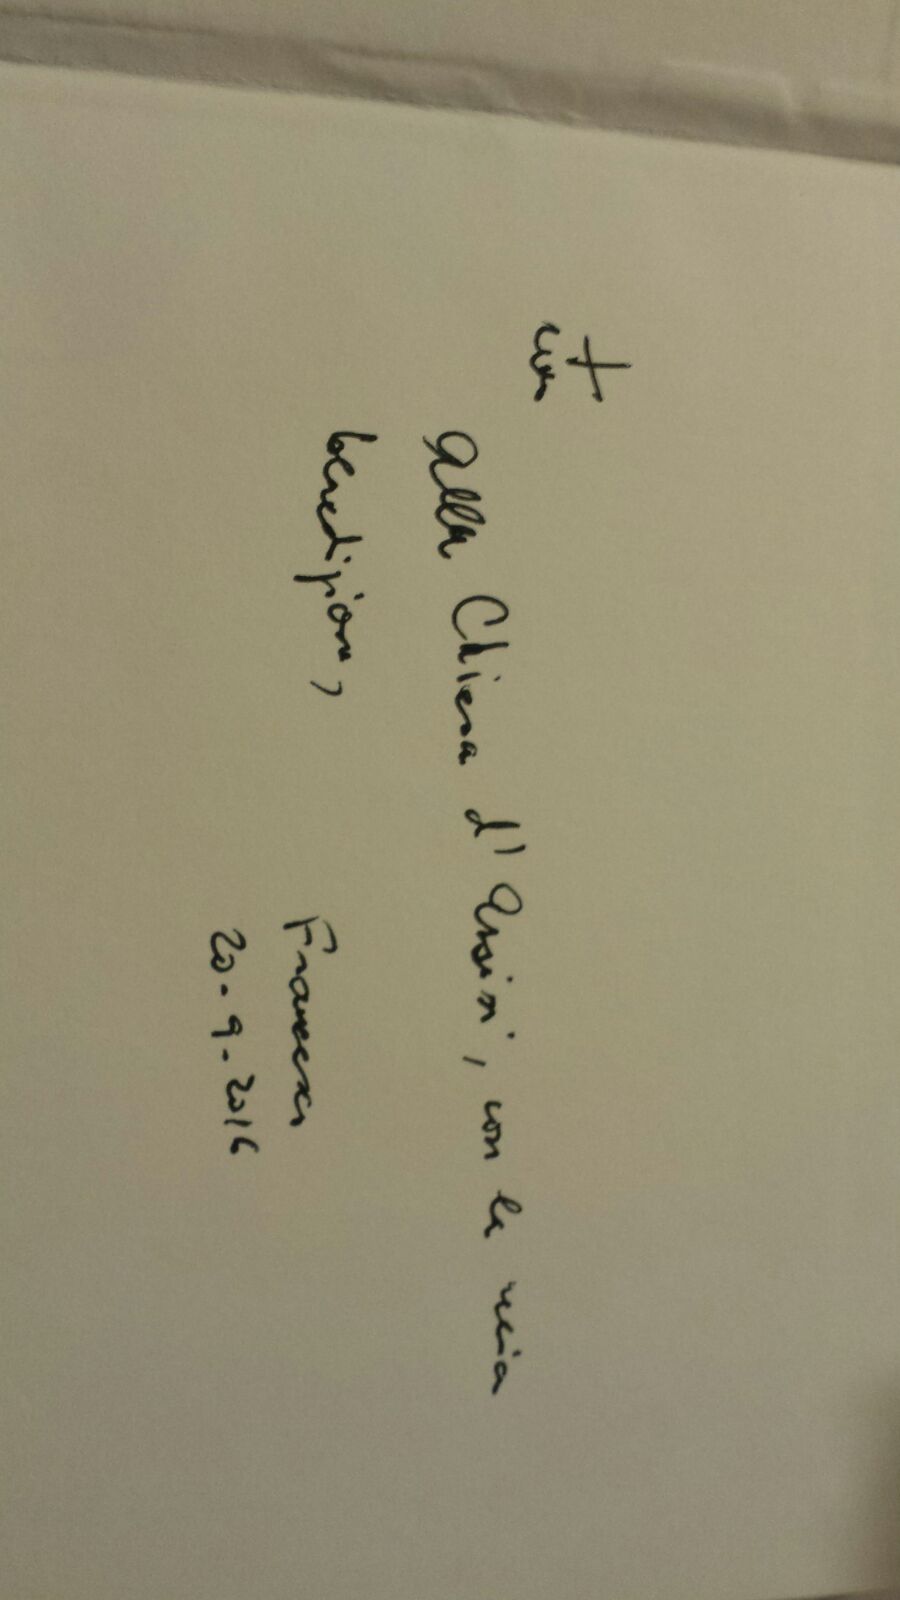 +
Alla Chiesa d'Assisi, con la mia
benedizione,
Francesco
20-9-2016